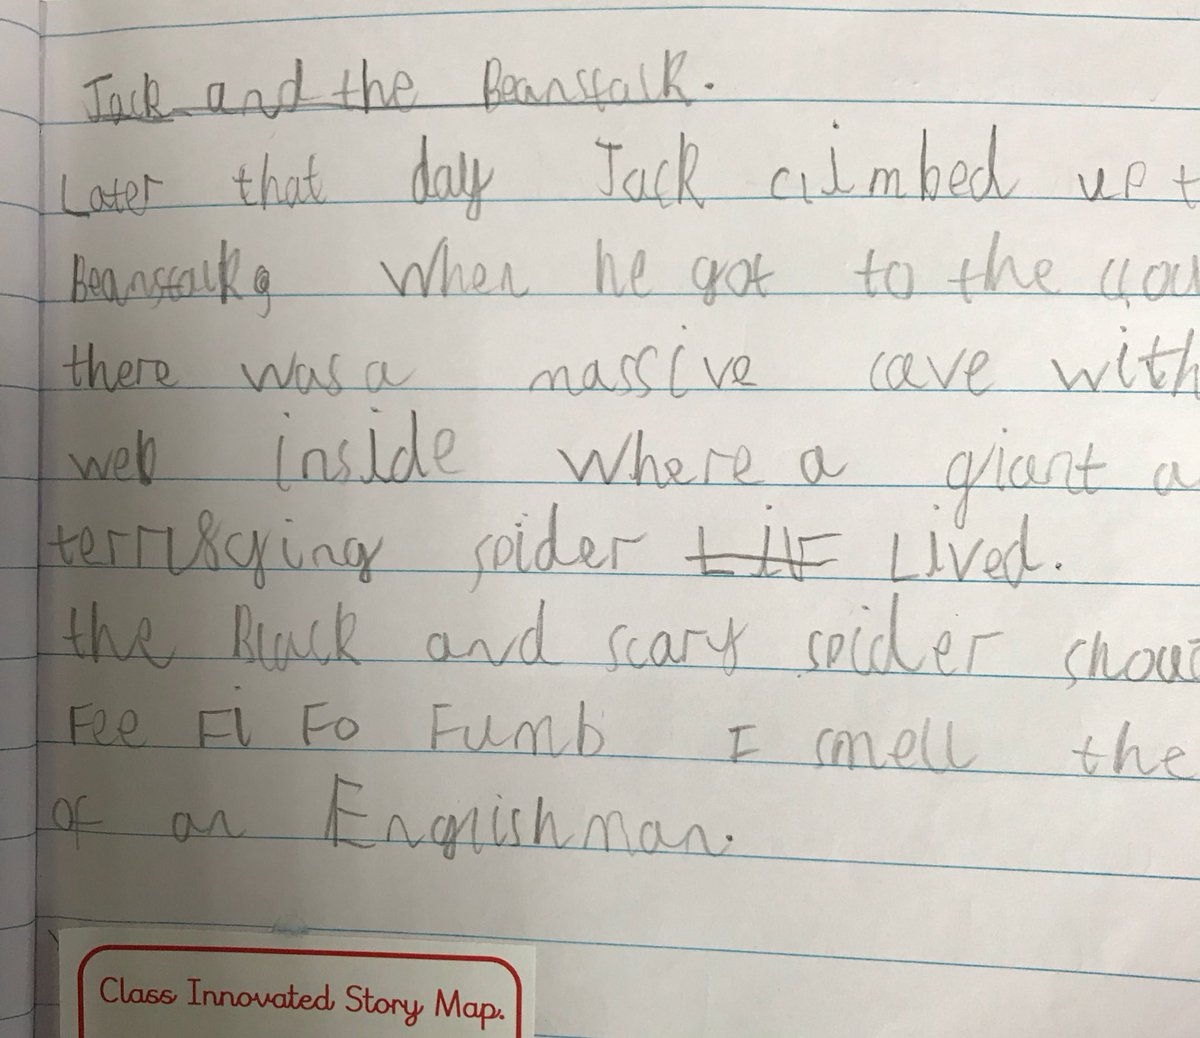 Jack and the Beanstalk.
Later that day Jack climbed up t
Beanstalk. When he got to the clou
there was a massive cave with
web inside where a giant a
terrifying spider Lived.
the Black and scary spider shout
Fee Fi Fo Fumb I smell the
of an Englishman.
Class Innovated Story Map.